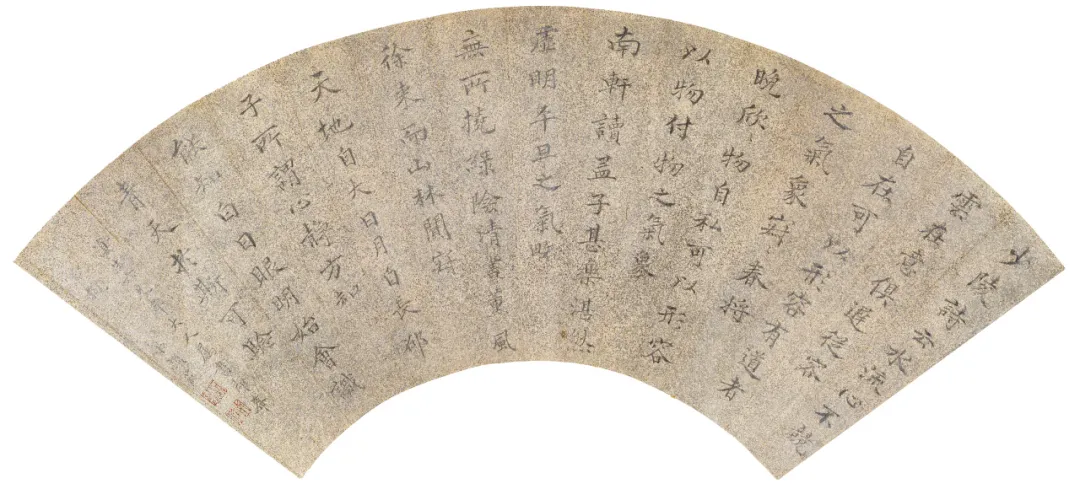 少陵詩云水流心不競
雲在意俱遲從容
自在可以形容有道者
之氣象寂春将
晚欣物自私可以形容
以物付物之氣象
南軒讀孟子甚樂湛然
虛明平旦之氣略
無所撓綠陰清晝薰風
徐來而山林闃寂
天地自大日月自長邵
子所謂心静方知
能知白日眼明始會識
青天於斯可驗